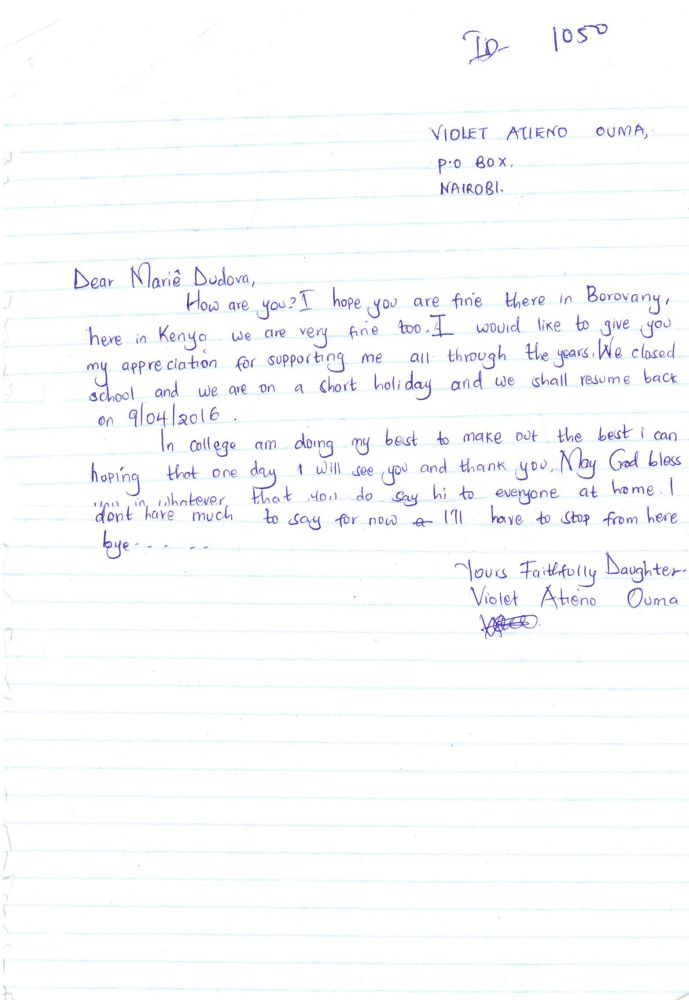 ID 1050
VIOLET ATIENO OUMA,
P.O BOX.
NAIROBI.
Dear Mariê Dudova,
How are you? I hope you are fine there in Borovany,
here in Kenya we are very fine too. I would like to give you
my appreciation for supporting me all through the years. We closed
school and we are on a short holiday and we shall resume back
on 9/04/2016.
In college am doing my best to make out the best i can
hoping that one day I will see you and thank you. May God bless
you in whatever that you do say hi to everyone at home. I
dont have much to say for now I'll have to stop from here
bye- - - - -
Yours Faithfully Daughter.
Violet Atieno Ouma